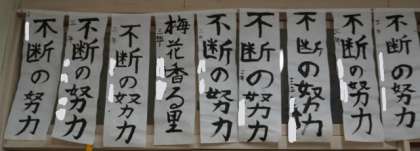 不断の努力
不断の努力
不断の努力
梅花香る里
不断の努力
不断の努力
不断の努力
不断の努力
不断の努力